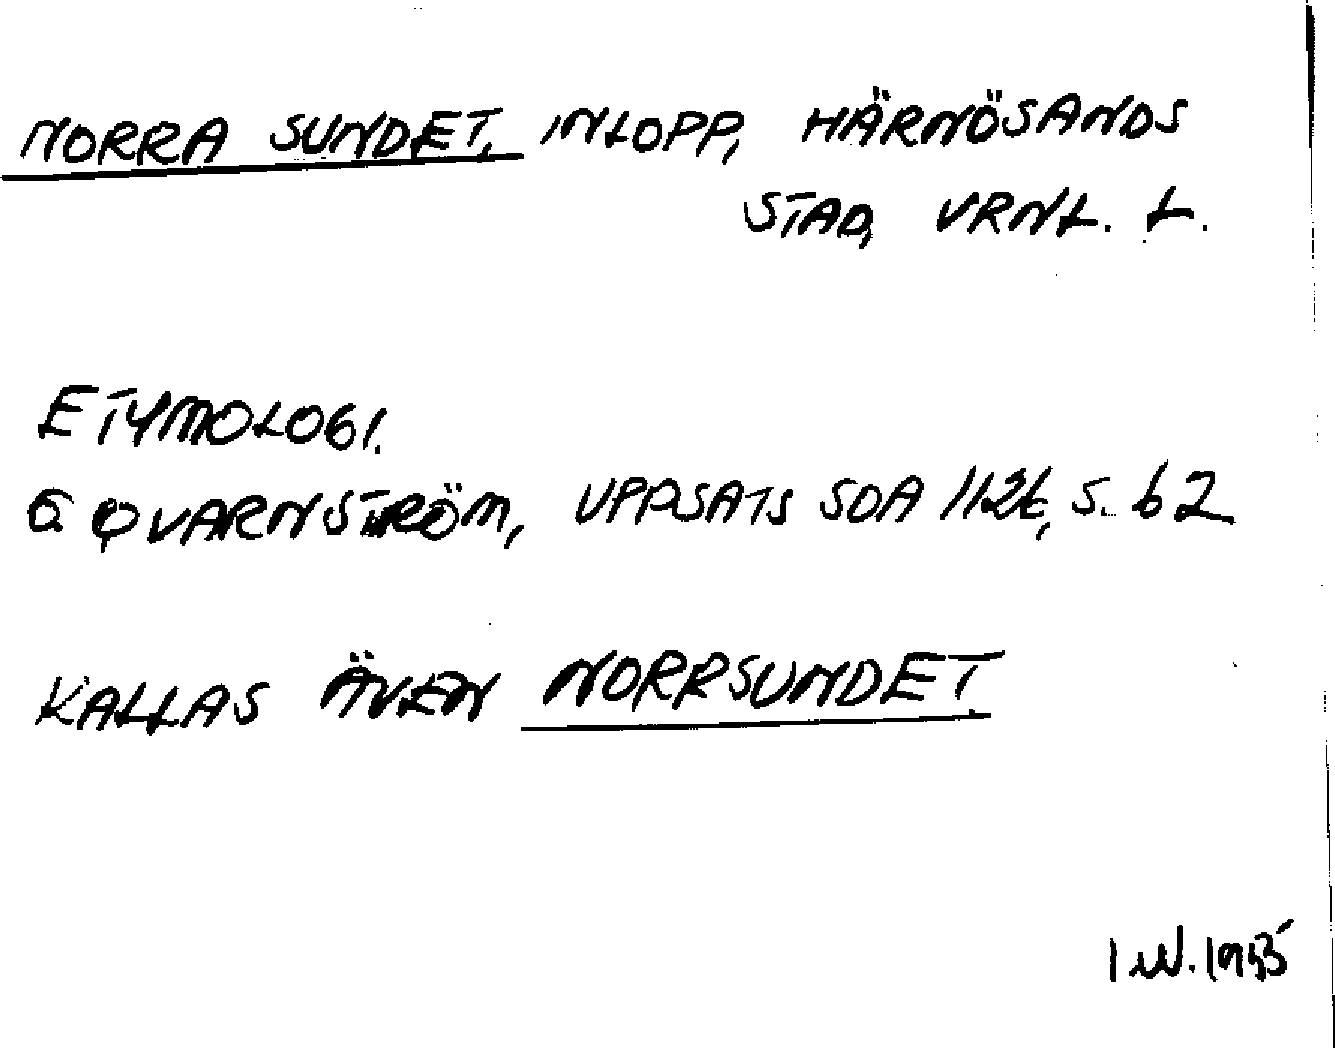 NORRA SUNDET, INLOPP, HÄRNÖSANDS
STAD, VRNL. L.
ETYMOLOGI.
G QVARNSTRÖM, UPPSATS SOA 1126, S. 62
KALLAS ÄVEN NORRSUNDET.
I W.